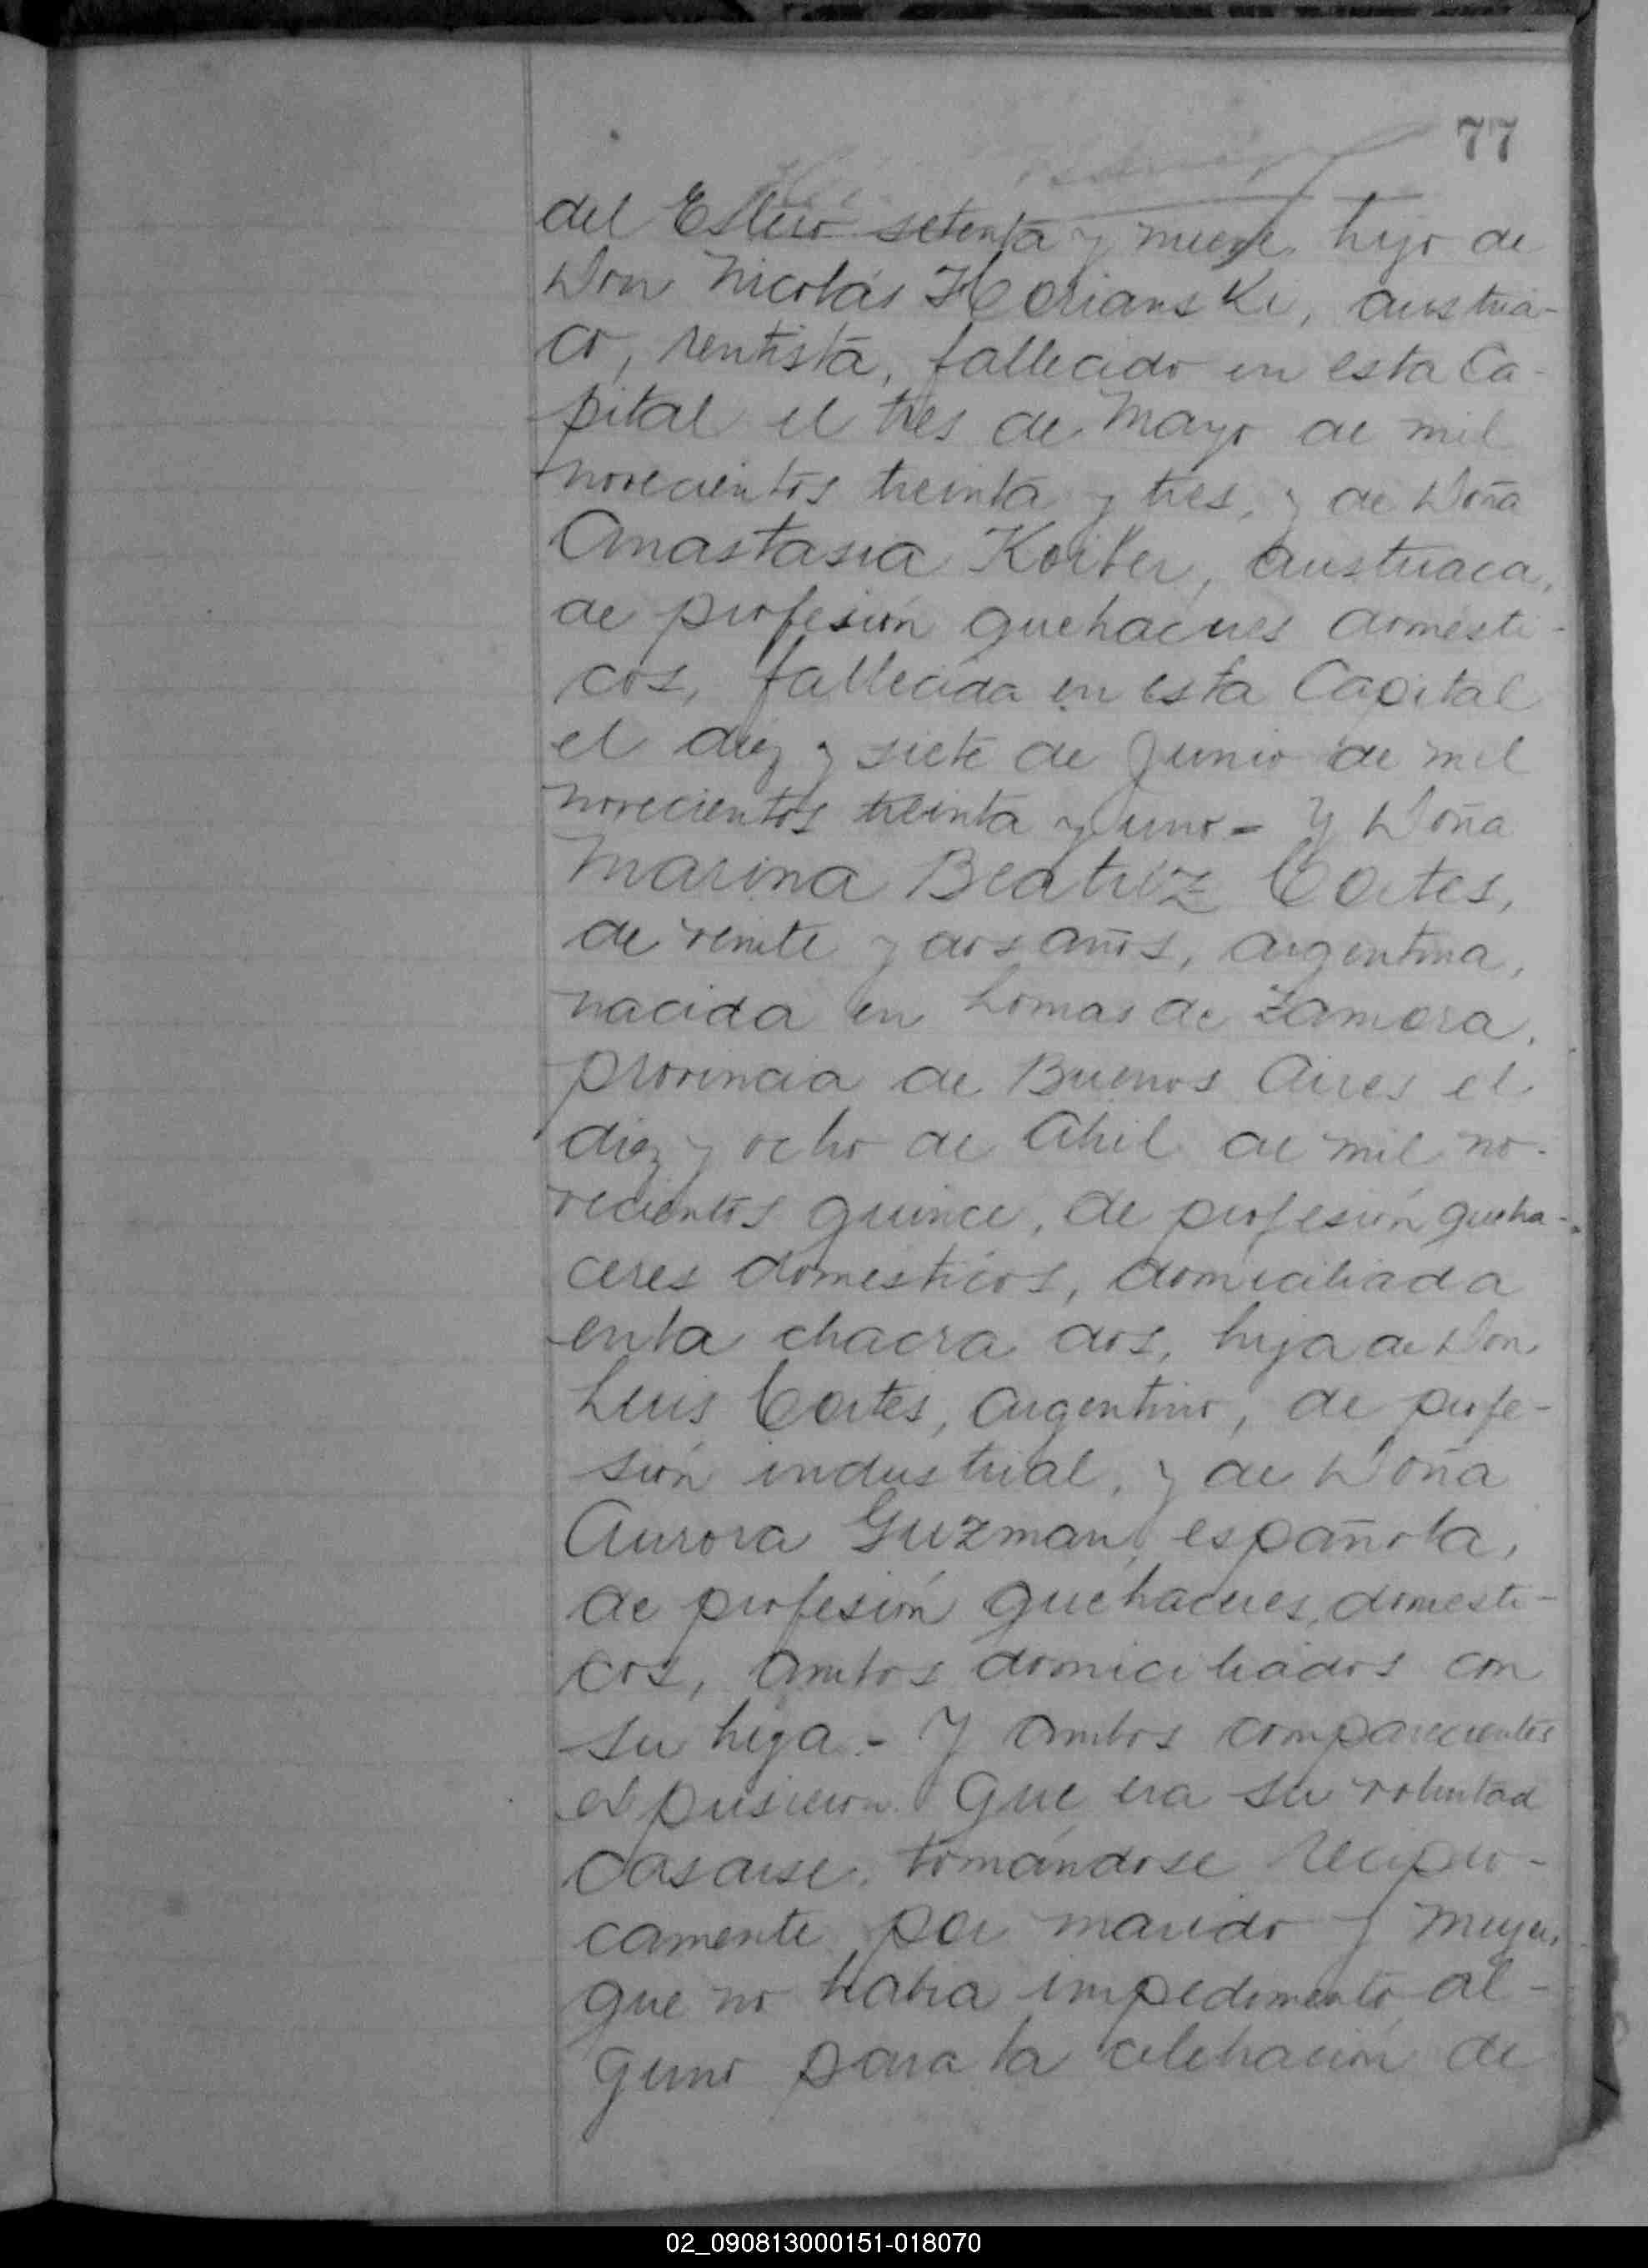 77
del Estero setenta y nueve, hijo de
Don Nicolás Horianski, austria-
co, rentista, fallecido en esta Ca-
pital el tres de Mayo de mil
novecientos treinta y tres, y de Doña
Anastasia Korber, austriaca,
de profesión quehaceres domesti-
cos, fallecida en esta Capital
el diez y siete de Junio de mil
novecientos treinta y uno - Y Doña
Marina Beatriz Cortes,
de veinte y dos años, argentina,
nacida en Lomas de Zamora,
provincia de Buenos Aires el
diez y ocho de Abril de mil no-
vecientos quince, de profesión queha-
ceres domesticos, domiciliada
en la chacra dos, hija de Don
Luis Cortes, argentino, de profe-
sión industrial, y de Doña
Aurora Guzman, española,
de profesión quehaceres domesti-
cos, ambos domiciliados con
su hija - Y ambos comparecientes
expusieron que era su voluntad
casarse, tomándose recipro-
camente por marido y mujer,
que no habia impedimento al-
guno para la celebración de
02_090813000151-018070